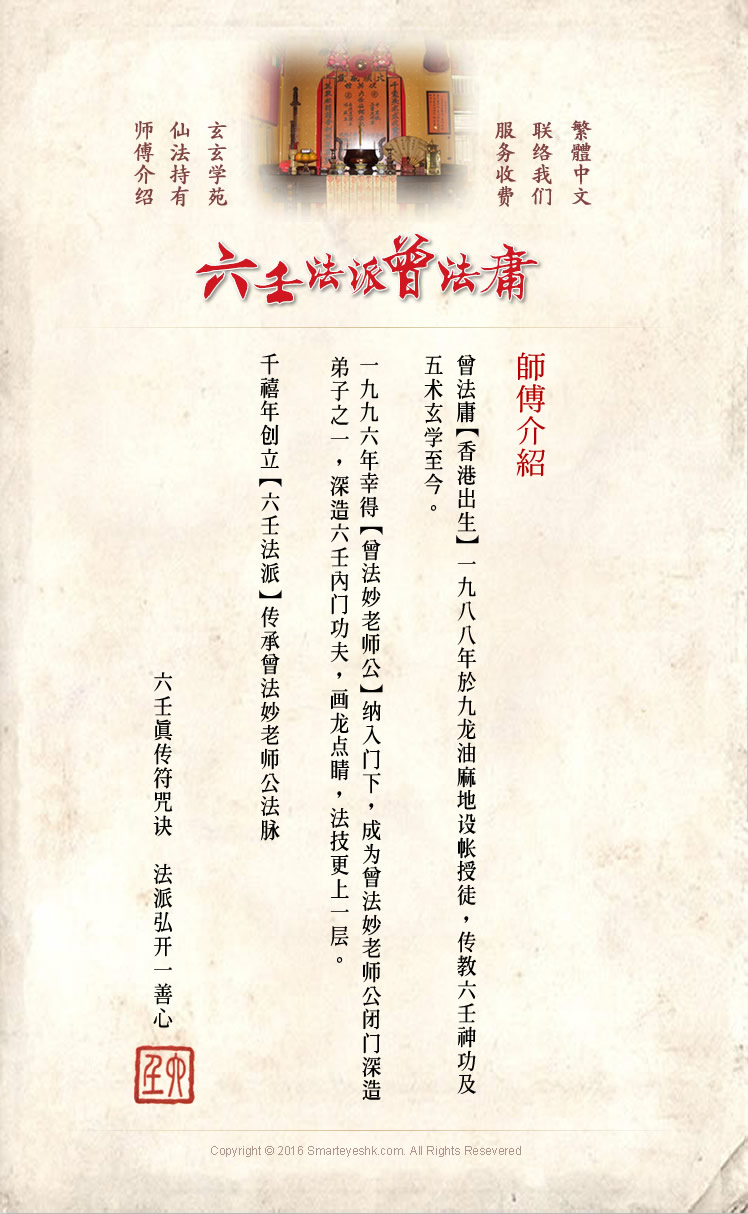 繁體中文
联络我们
服务收费
玄玄学苑
仙法持有
师傅介绍
六壬法派曾法庸
師傅介紹
曾法庸【香港出生】一九八八年於九龙油麻地设帐授徒，传教六壬神功及
五术玄学至今。
一九九六年幸得【曾法妙老师公】纳入门下，成为曾法妙老师公闭门深造
弟子之一，深造六壬內门功夫，画龙点睛，法技更上一层。
千禧年创立【六壬法派】传承曾法妙老师公法脉
六壬眞传符咒诀　法派弘开一善心
六壬
Copyright © 2016 Smarteyeshk.com. All Rights Resevered